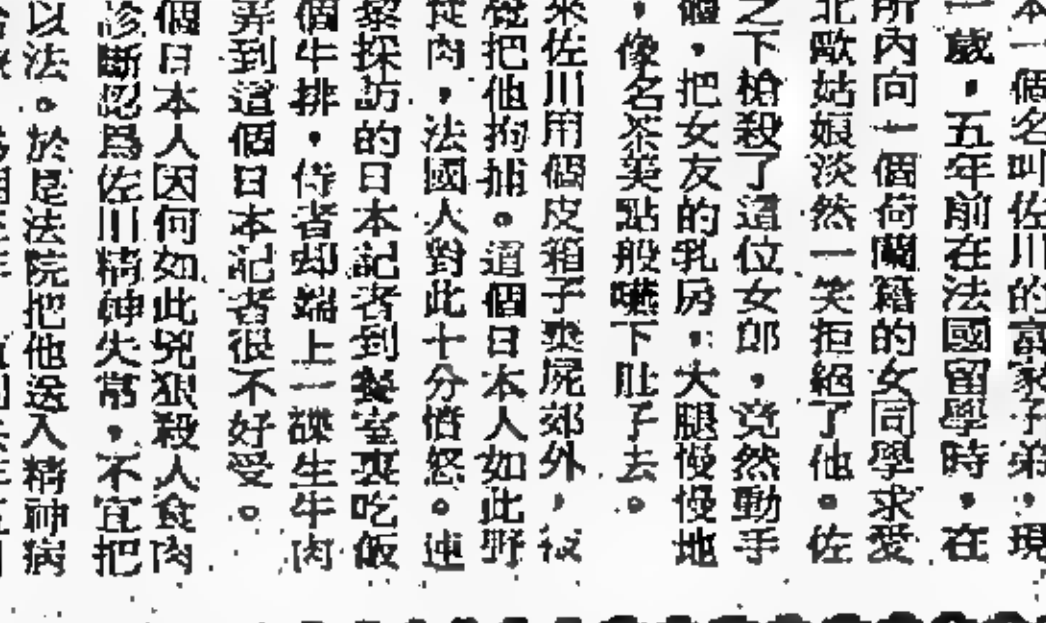 本一個名叫佐川的富家子弟，現
一歲，五年前在法國留學時，在
所內向一個荷蘭籍的女同學求愛
北歐姑娘淡然一笑拒絕了他。佐
之下槍殺了這位女郎，竟然動手
體，把女友的乳房，大腿慢慢地
，像名茶美點般嚥下肚子去。
來佐川用個皮箱子裝屍郊外，被
覺把他拘捕。這個日本人如此野
從肉，法國人對此十分憤怒。連
察探訪的日本記者到餐室裏吃飯
個牛排，侍者却端上一碟生牛肉
弄到這個日本記者很不好受。
個日本人因何如此兇狠殺人食肉
診斷認爲佐川精神失常，不宜把
以法。於是法院把他送入精神病